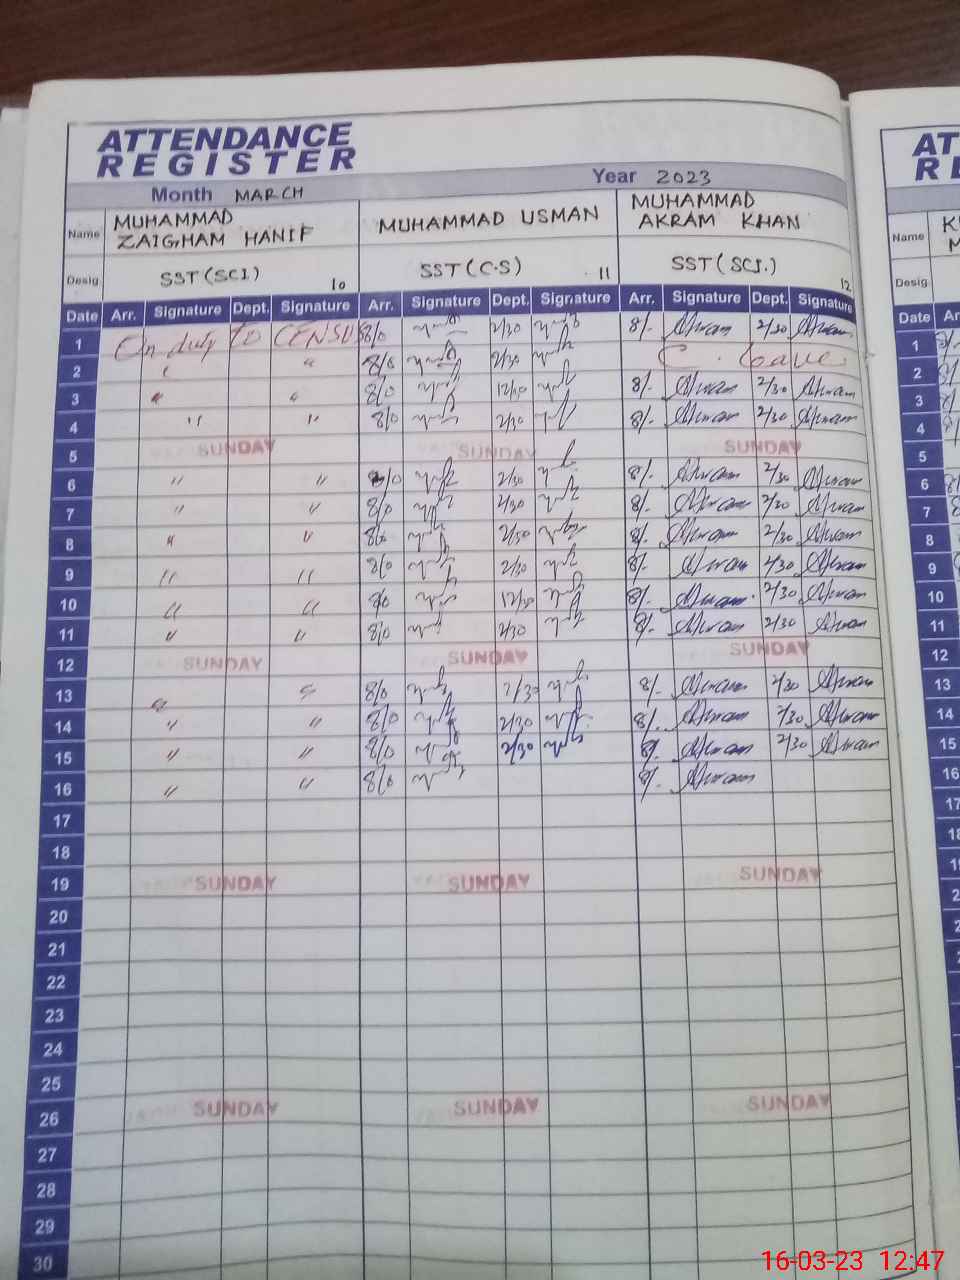 ATTENDANCE
REGISTER
Month MARCH Year 2023
Name MUHAMMAD ZAIGHAM HANIF MUHAMMAD USMAN MUHAMMAD AKRAM KHAN
Desig. SST (SCI) 10 SST (C.S) 11 SST (SCI.) 12
Date Arr. Signature Dept. Signature Arr. Signature Dept. Signature Arr. Signature Dept. Signature
1 On duty to CENSUS 8/0 2/30 8/. Akram 2/30 Akram
2 " " 8/0 2/30 C. Leave
3 " " 8/0 12/00 8/. Akram 2/30 Akram
4 " " 8/0 2/30 8/. Akram 2/30 Akram
5 SUNDAY SUNDAY SUNDAY
6 " " 8/0 2/30 8/. Akram 2/30 Akram
7 " " 8/0 2/30 8/. Akram 2/30 Akram
8 " " 8/0 2/30 8/. Akram 2/30 Akram
9 " " 8/0 2/30 8/. Akram 2/30 Akram
10 " " 8/0 8/. Akram 2/30 Akram
11 " " 8/0 2/30 8/. Akram 2/30 Akram
12 SUNDAY SUNDAY SUNDAY
13 " " 8/0 2/30 8/. Akram 2/30 Akram
14 " " 8/0 2/30 8/. Akram 2/30 Akram
15 " " 8/0 2/30 8/. Akram 2/30 Akram
16 " " 8/0 8/. Akram
17
18
19 SUNDAY SUNDAY SUNDAY
20
21
22
23
24
25
26 SUNDAY SUNDAY SUNDAY
27
28
29
30
AT
RE
Name
Desig.
Date
1
2
3
4
5
6
7
8
9
10
11
12
13
14
15
16
17
18
16-03-23 12:47